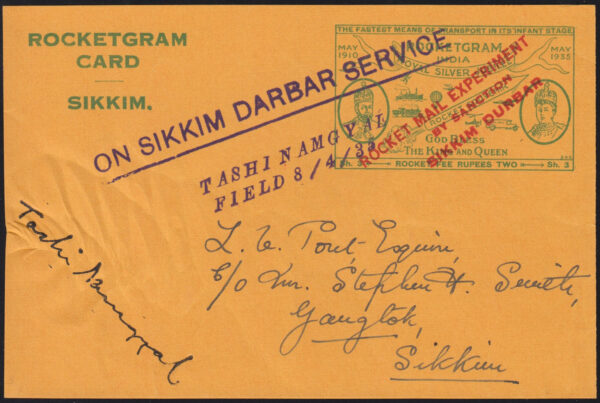 ROCKETGRAM
CARD
SIKKIM.
THE FASTEST MEANS OF TRANSPORT IN ITS INFANT STAGE.
MAY
1910
ROCKETGRAM
INDIA
ROYAL SILVER
MAY
1935
GOD BLESS
THE KING AND QUEEN
Sh. 3
ROCKET FEE RUPEES TWO
Sh. 3
ROCKET MAIL EXPERIMENT
BY SANCTION
SIKKIM DURBAR
ON SIKKIM DARBAR SERVICE
TASHINAMGYAL
FIELD 8/4/35
Tashi Namgyal
Esquire,
c/o Mr. Stephen H. Smith,
Gangtok,
Sikkim